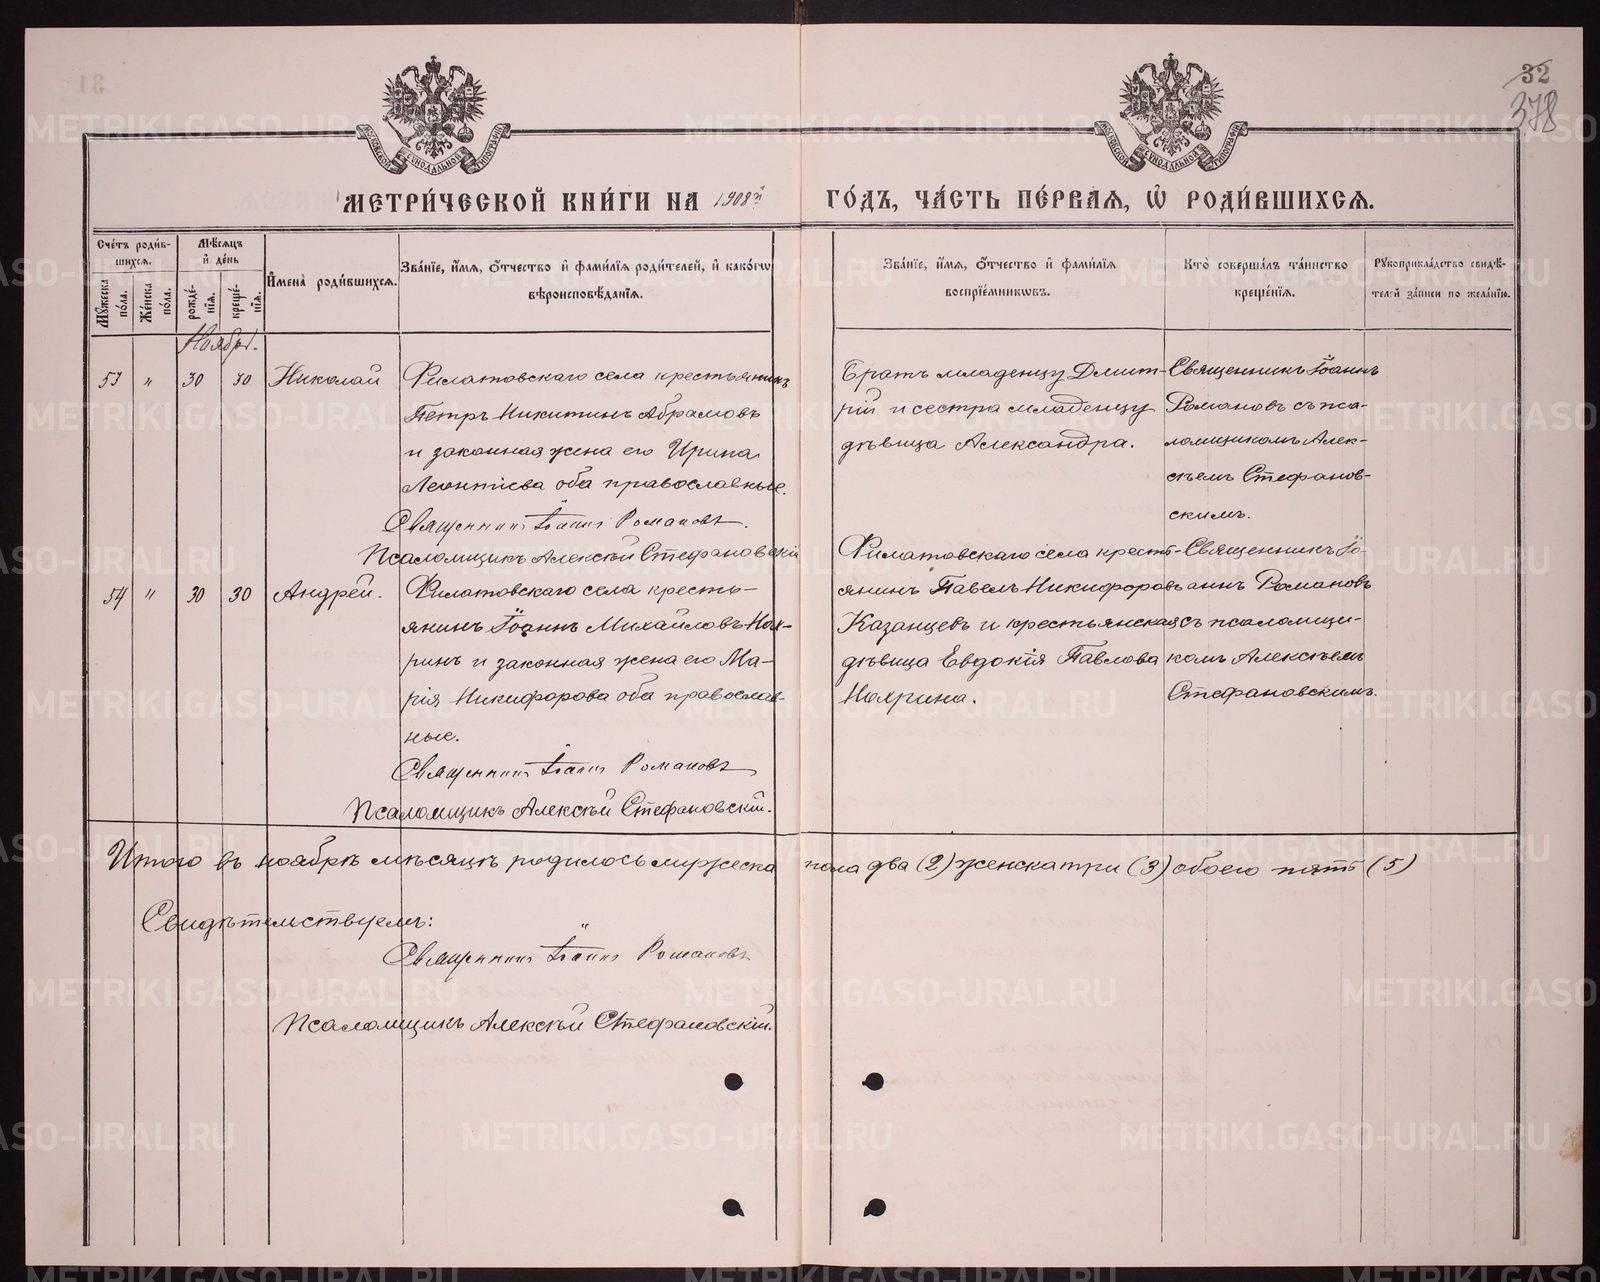 32
378
МЕТРИ́ЧЕСКОЙ КНИ́ГИ НА 1908й ГО́ДЪ, ЧА́СТЬ ПЕ́РВАЯ, Ѡ҆ РОДИ́ВШИХСЯ.
Сче́тъ роди́в-
шихся.
Мꙋ́жеска по́ла.
Же́нска по́ла.
Мѣ́сяцъ
и҆ де́нь
рожде́-
нїя.
креще́-
нїя.
И҆мена̀ роди́вшихся.
Зва́нїе, и҆́мя, ѻ҆́тчество и҆ фами́лїя роди́телей, и҆ како́гѡ
вѣроисповѣ́данїя.
Зва́нїе, и҆́мя, ѻ҆́тчество и҆ фами́лїя
воспрїе́мникѡвъ.
Кто̀ соверша́лъ та́инство
креще́нїя.
Рꙋкоприкла́дство свидѣ́-
телей за́писи по жела́нїю.
Ноябрь.
53 " 30 30 Николай
Филатовскаго села крестьянинъ
Петръ Никитинъ Абрамовъ
и законная жена его Ирина
Леонтіева оба православные.
Священникъ Іоаннъ Романовъ.
Псаломщикъ Алексѣй Стефановскій
Братъ младенцу Дмит-
рій и сестра младенцу
дѣвица Александра.
Священникъ Іоаннъ
Романовъ съ пса-
ломщикомъ Алек-
сѣемъ Стефанов-
скимъ.
54 " 30 30 Андрей.
Филатовскаго села кресть-
янинъ Іоаннъ Михайловъ Ноя-
ринъ и законная жена его Ма-
рія Никифорова оба православ-
ные.
Священникъ Іоаннъ Романовъ
Псаломщикъ Алексѣй Стефановскій.
Филатовскаго села кресть-
янинъ Павелъ Никифоровъ
Казанцевъ и крестьянская
дѣвица Евдокія Павлова
Ноярина.
Священникъ Іо-
аннъ Романовъ
съ псаломщи-
комъ Алексѣемъ
Стефановскимъ.
Итого въ ноябрѣ мѣсяцѣ родилось мужеска пола два (2) женска три (3) обоего пять (5)
Свидѣтельствуемъ:
Священникъ Іоаннъ Романовъ
Псаломщикъ Алексѣй Стефановскій.
METRIKI.GASO-URAL.RU